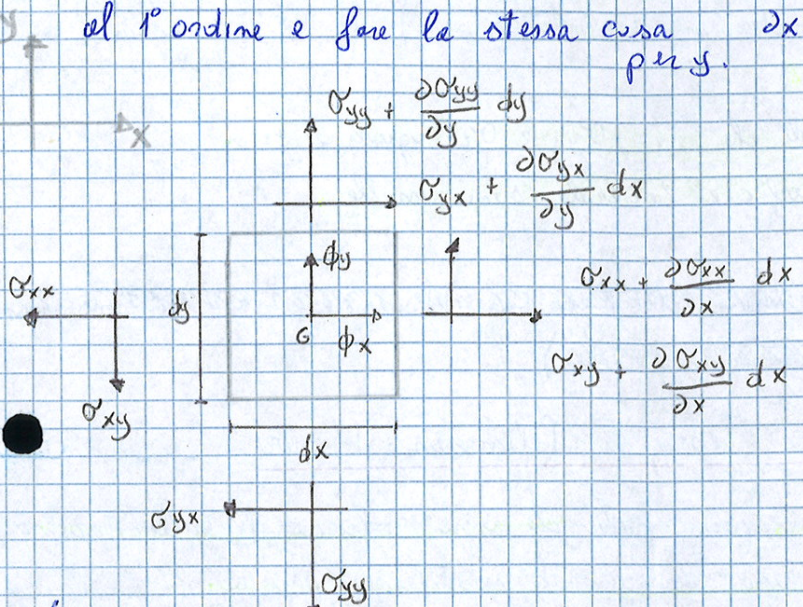 al 1° ordine e fare la stessa cosa ∂x
per y.
y
x
σyy + ∂σyy/∂y dy
σyx + ∂σyx/∂y dx
ϕy
σxx
dy
σxx + ∂σxx/∂x dx
G
ϕx
σxy + ∂σxy/∂x dx
σxy
dx
σyx
σyy